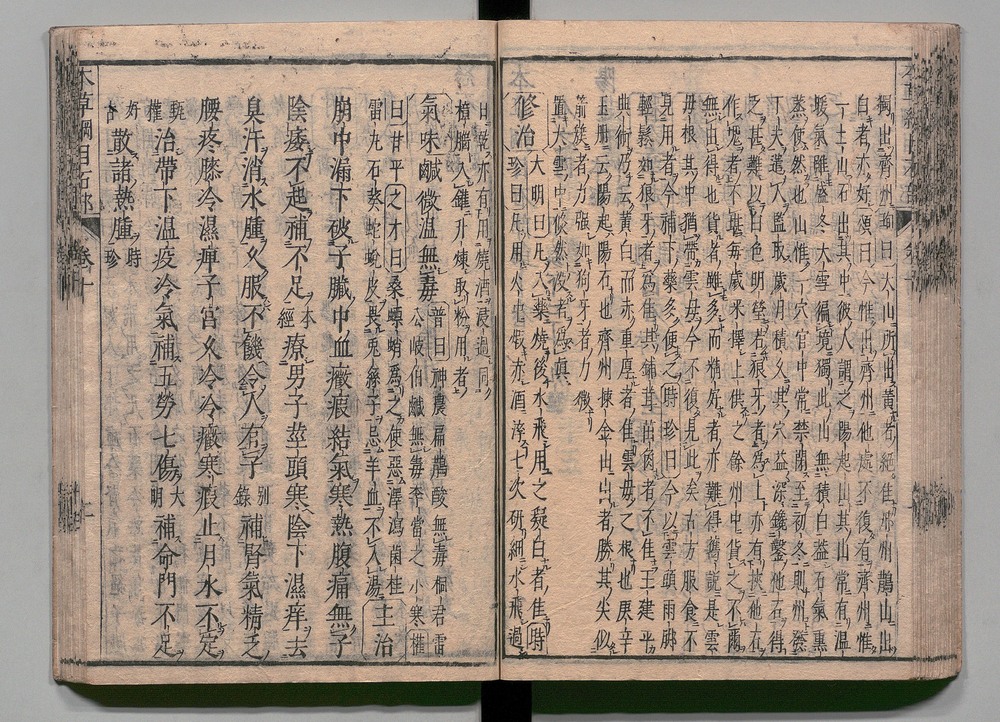 獨出齊州珣曰太山所出黃者絕佳邢州鵲山出
白者亦好頌曰今惟出齊州他處不復有齊州惟
一土山石出其中彼人謂之陽起山其山常有溫
暖氣雖盛冬大雪徧境獨此山無積白蓋石氣熏
蒸使然也山惟一穴官中常禁閉至初冬則州發
丁夫遣人監取歲月積久其穴益深鑱鑿他石得
之甚難以白色明瑩若狼牙者為上亦有挾他石
作塊者不堪每歲采擇上供之餘州中貨之不爾
無由得也貨者雖多而精好者亦難得舊說是雲
母根其中猶帶雲母今不復見此矣古方服食不
見用者今補下藥多使之時珍曰今以雲頭雨脚
輕鬆如狼牙者為佳其鋪茸茁角者不佳王建平
典術乃云黃白而赤重厚者佳雲母之根也庚辛
玉冊云陽起陽石也齊州揀金山出者勝其尖似
箭鏃者力強如狗牙者力微
置大雪中倐然沒者為眞
修治大明曰凡入藥燒後水飛用之凝白者佳時
珍曰凡用火中煆赤酒淬七次研細水飛過
日乾亦有用燒酒浸過同
樟腦入鑵升煉取粉用者
氣味鹹微溫無毒普曰神農扁鵲酸無毒桐君雷
公岐伯鹹無毒李當之小寒權
曰甘平之才曰桑螵蛸為之使惡澤瀉菌桂
雷丸石葵蛇蛻皮畏兎絲子忌羊血不入湯主治
崩中漏下破子臟中血癥瘕結氣寒熱腹痛無子
陰痿不起補不足本經療男子莖頭寒陰下濕痒去
臭汗消水腫久服不饑令人有子別錄補腎氣精乏
腰疼膝冷濕痺子宮久冷冷癥寒瘕止月水不定
甄權治帶下溫疫冷氣補五勞七傷大明補命門不足
好古散諸熱腫時珍
本草綱目石部
卷十